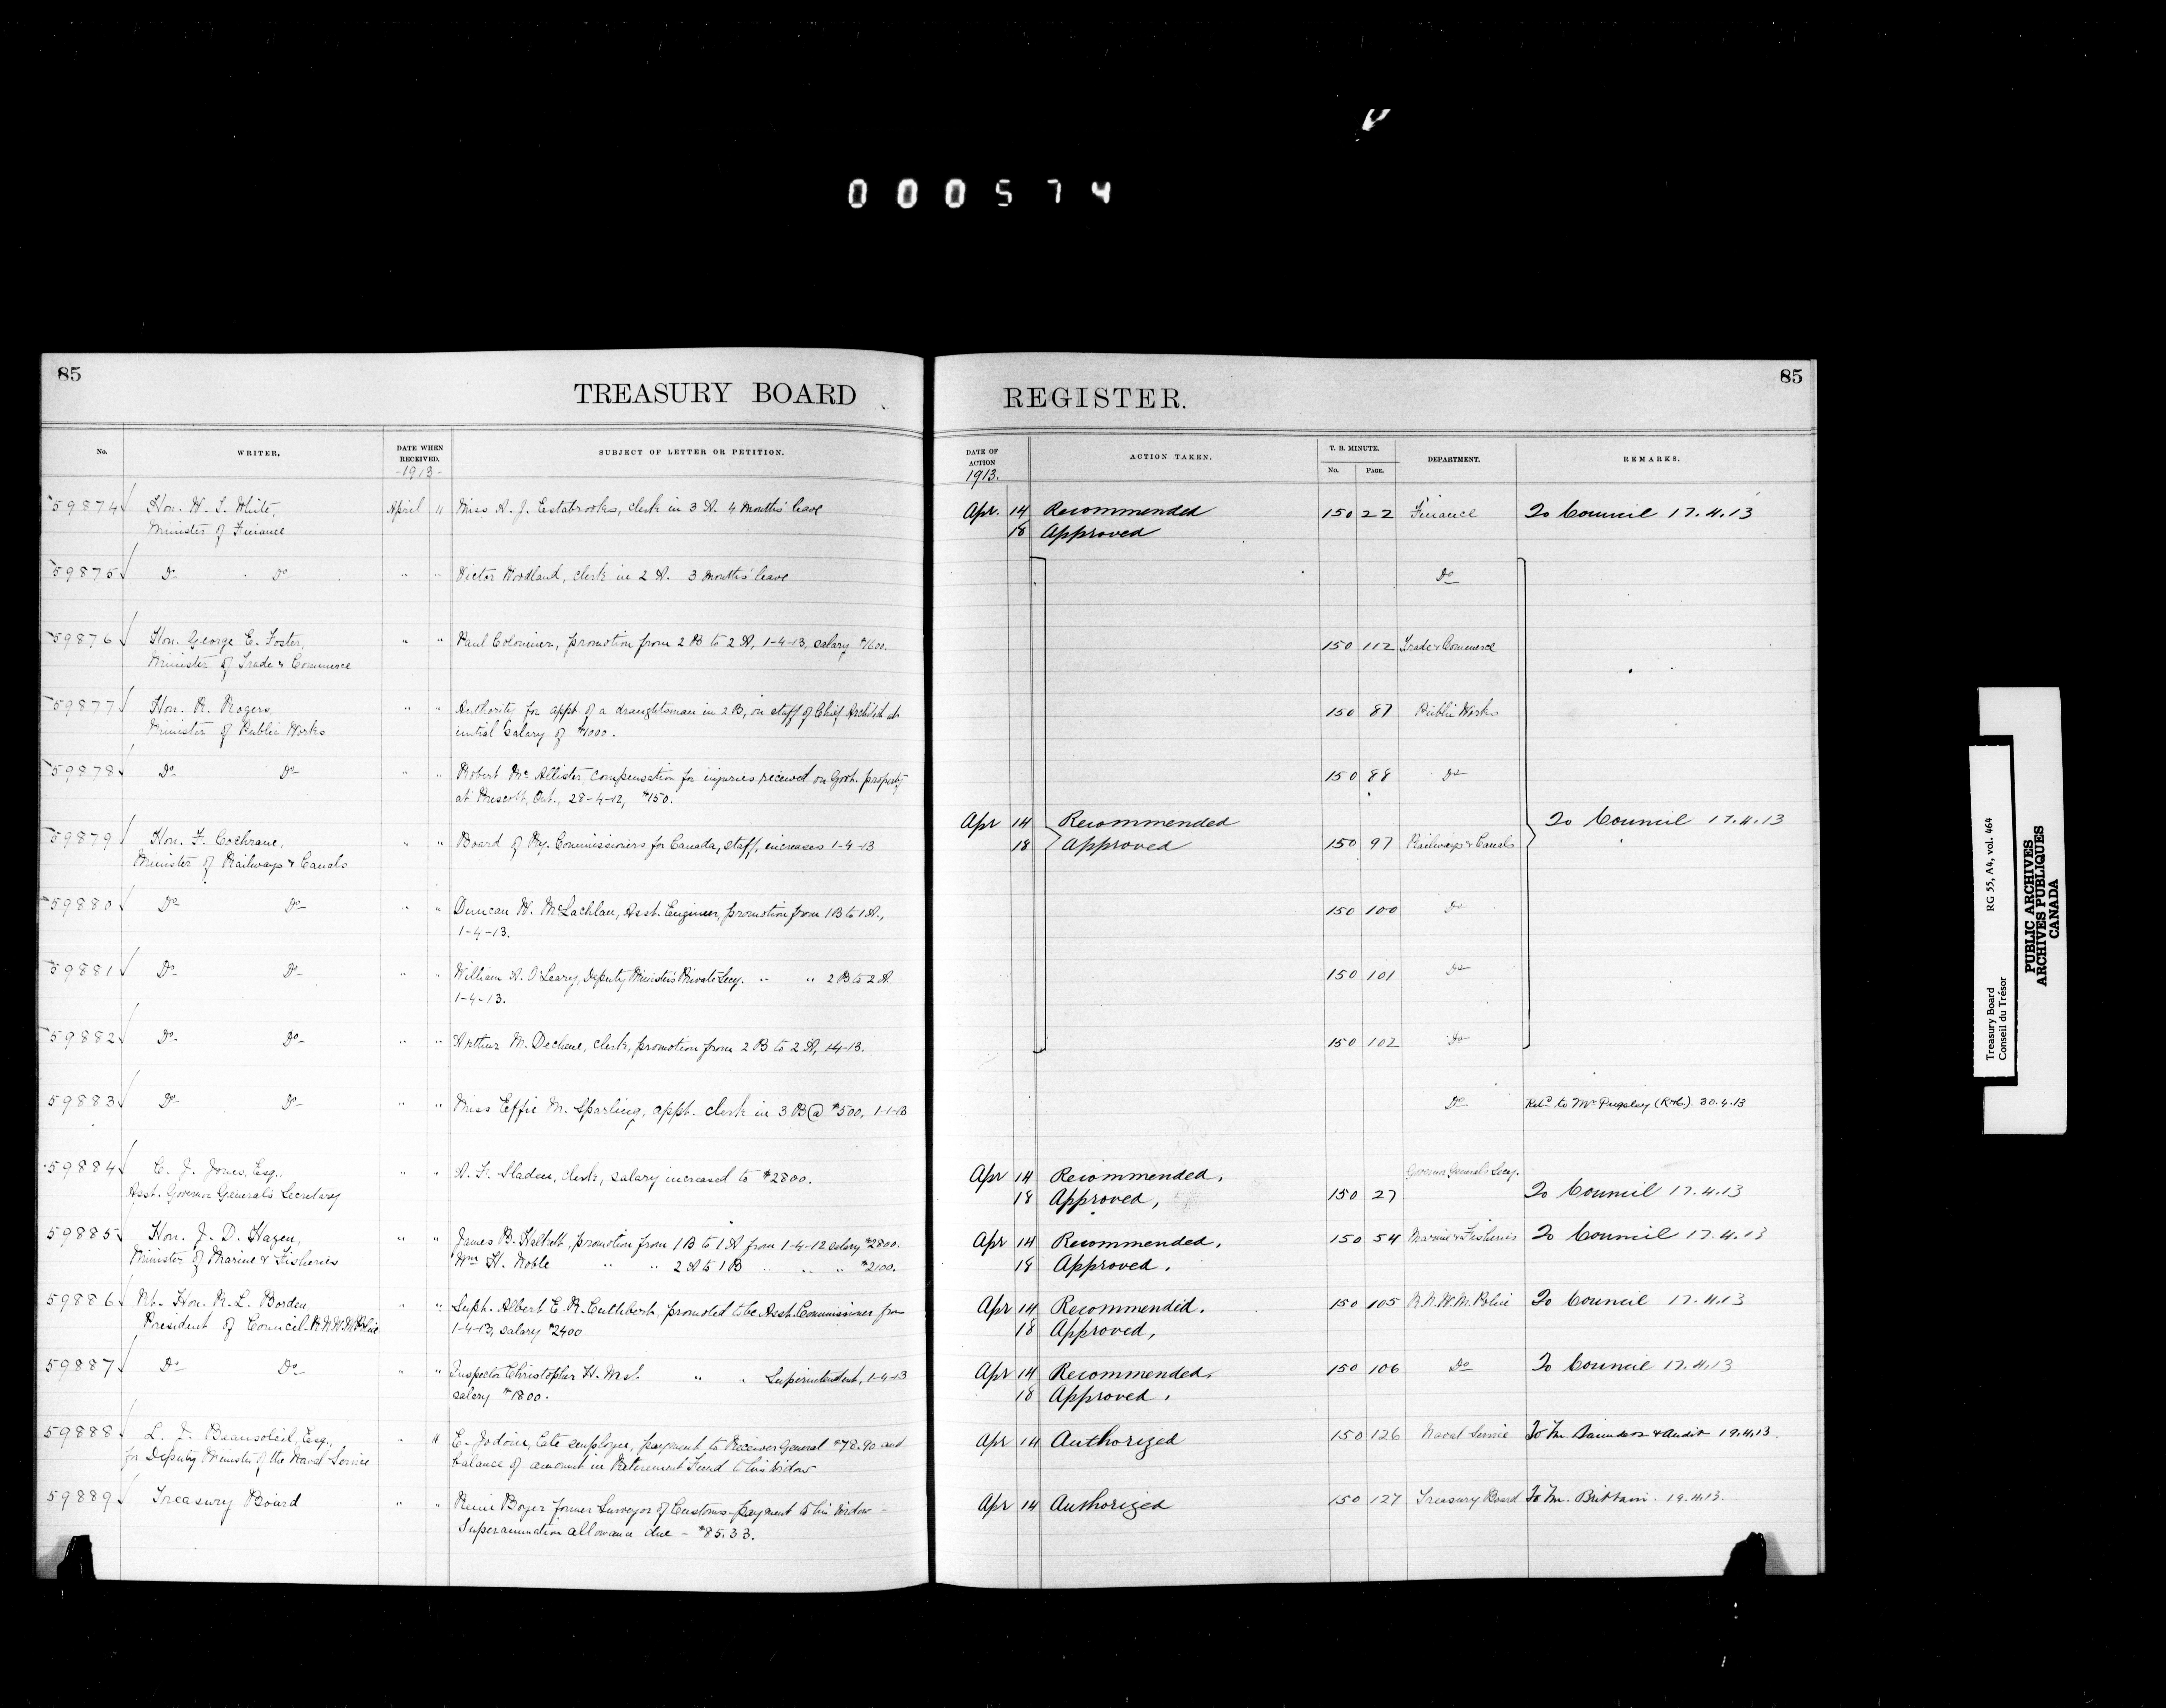 000574
85
TREASURY BOARD
REGISTER.
85
No.
WRITER.
DATE WHEN RECEIVED.
-1913-
SUBJECT OF LETTER OR PETITION.
DATE OF ACTION
1913.
ACTION TAKEN.
T. B. MINUTE.
No.
PAGE.
DEPARTMENT.
REMARKS.
59874 Hon. W. T. White, April 11 Miss A. J. Estabrooks, clerk in 3 A. 4 Months' leave Apr. 14 Recommended 150 22 Finance To Council 17.4.13
Minister of Finance 18 Approved
59875 Do Do " " Victor Woodland, clerk in 2 A. 3 Months' leave Do
59876 Hon. George E. Foster, " " Paul Colominer, promotion from 2 B to 2 A, 1-4-13, salary $1600. 150 112 Trade & Commerce
Minister of Trade & Commerce
59877 Hon. R. Rogers, " " Authority for appt. of a draughtsman in 2B, on staff of Chief Architect at 150 87 Public Works
Minister of Public Works initial salary of $1000.
59878 Do Do " " Robert McAllister compensation for injuries received on Govt. property 150 88 Do
at Prescott, Ont., 28-4-12, $150.
Apr 14 Recommended To Council 17.4.13
59879 Hon. F. Cochrane, " " Board of Ry. Commissioners for Canada, staff, increases 1-4-13 18 Approved 150 97 Railways & Canals
Minister of Railways & Canals
59880 Do Do " " Duncan W. McLachlan, Asst. Engineer, promotion from 1B to 1A, 150 100 Do
1-4-13.
59881 Do Do " " William A. O'Leary, Deputy Minister's Private Secy. " " 2 B to 2 A 150 101 Do
1-4-13.
59882 Do Do " " Arthur M. Dechene, clerk, promotion from 2 B to 2 A, 1-4-13. 150 102 Do
59883 Do Do " " Miss Effie M. Sparling, appt. clerk in 3 B @ $500, 1-1-13 Do Retd to Mr Pugsley (R&C). 30.4.13
59884 C. J. Jones, Esq., " " A. F. Sladen, clerk, salary increased to $2800. Apr 14 Recommended. Governor General's Secy.
Asst. Governor General's Secretary 18 Approved, 150 27 To Council 17.4.13
59885 Hon. J. D. Hazen, " " James B. Halkett, promotion from 1B to 1A from 1-4-12 salary $2800. Apr 14 Recommended. 150 54 Marine & Fisheries To Council 17.4.13
Minister of Marine & Fisheries Wm H. Noble " " 2 A to 1 B " " " $2100. 18 Approved.
59886 Rt. Hon. R. L. Borden " " Supt. Albert E. R. Cuthbert, promoted to be Asst. Commissioner from Apr 14 Recommended. 150 105 R.N.W.M. Police To Council 17.4.13
President of Council-R.N.W.M. Police 1-4-13, salary $2400 18 Approved,
59887 Do Do " " Inspector Christopher H. " " Superintendent, 1-4-13 Apr 14 Recommended. 150 106 Do To Council 17.4.13
salary $1800. 18 Approved.
59888 L. J. Beausoleil, Esq., " " E. Jodoin, late employee, payment to Receiver General $78.90 and Apr 14 Authorized 150 126 Naval Service To Mr Saunders & Audit 19.4.13.
for Deputy Minister of the Naval Service balance of amount in Retirement Fund to his widow
59889 Treasury Board " " Boyer former Surveyor of Customs-payment to his widow - Apr 14 Authorized 150 127 Treasury Board To Mr. Brittain. 19.4.13.
Superannuation allowance due - $85.33.
Treasury Board RG 55, A4, vol. 464
Conseil du Trésor
PUBLIC ARCHIVES
ARCHIVES PUBLIQUES
CANADA